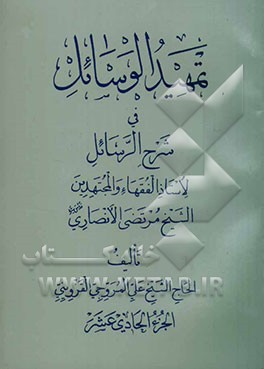 تمهيد الوسائل
في
شرح الرسائل
لأستاذ الفقهاء والمجتهدين
الشيخ مرتضى الأنصاري
تأليف
الحاج الشيخ علي المروجي القزويني
الجزء الحادي عشر